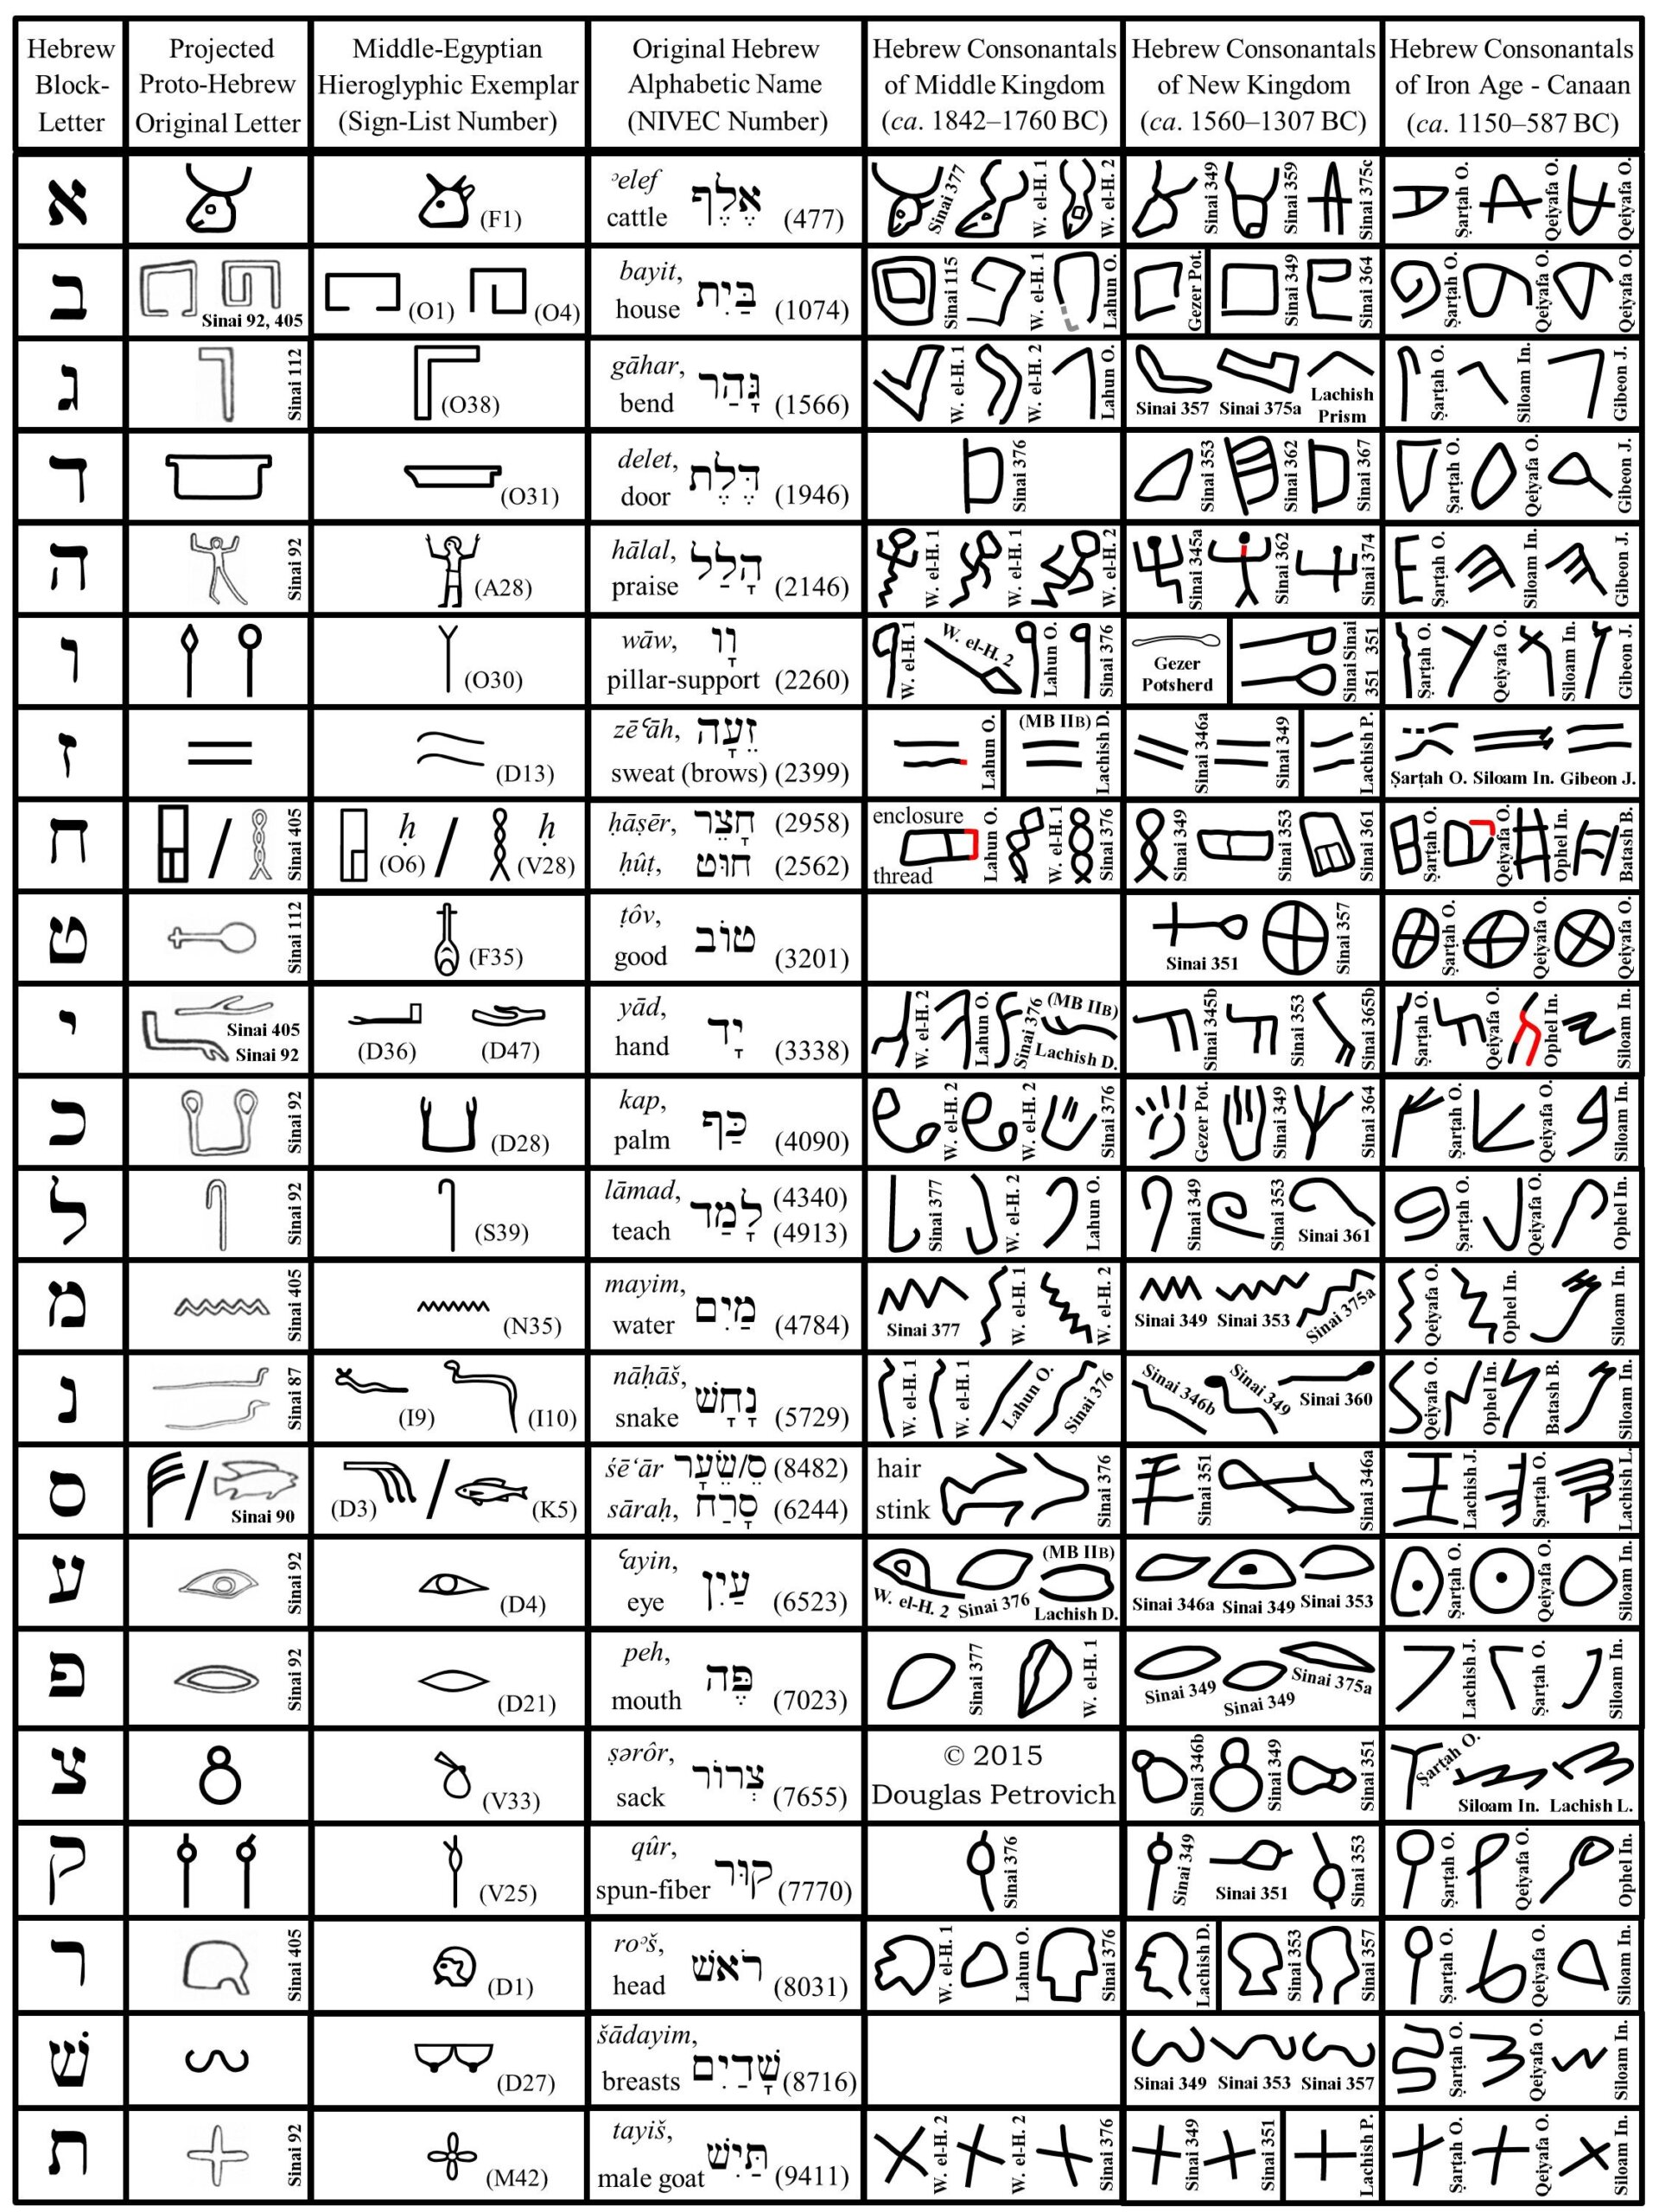 Hebrew Block-Letter
Projected Proto-Hebrew Original Letter
Middle-Egyptian Hieroglyphic Exemplar (Sign-List Number)
Original Hebrew Alphabetic Name (NIVEC Number)
Hebrew Consonantals of Middle Kingdom (ca. 1842–1760 BC)
Hebrew Consonantals of New Kingdom (ca. 1560–1307 BC)
Hebrew Consonantals of Iron Age - Canaan (ca. 1150–587 BC)
א
(F1)
ʾelef cattle אֶלֶף (477)
Sinai 377 W. el-H. 1 W. el-H. 2
Sinai 349 Sinai 359 Sinai 375c
Ṣarṭah O. Qeiyafa O. Qeiyafa O.
ב
Sinai 92, 405
(O1) (O4)
bayit, house בַּיִת (1074)
Sinai 115 W. el-H. 1 Lahun O.
Gezer Pot. Sinai 349 Sinai 364
Ṣarṭah O. Qeiyafa O. Qeiyafa O.
ג
Sinai 112
(O38)
gāhar, bend גָּהַר (1566)
W. el-H. 1 W. el-H. 2 Lahun O.
Sinai 357 Sinai 375a Lachish Prism
Ṣarṭah O. Siloam In. Gibeon J.
ד
(O31)
delet, door דֶּלֶת (1946)
Sinai 376
Sinai 353 Sinai 362 Sinai 367
Ṣarṭah O. Qeiyafa O. Gibeon J.
ה
Sinai 92
(A28)
hālal, praise הָלַל (2146)
W. el-H. 1 W. el-H. 1 W. el-H. 2
Sinai 345a Sinai 362 Sinai 374
Ṣarṭah O. Siloam In. Gibeon J.
ו
(O30)
wāw, pillar-support וָו (2260)
W. el-H. 1 W. el-H. 2 Lahun O. Sinai 376
Gezer Potsherd Sinai 351 Sinai 351
Ṣarṭah O. Qeiyafa O. Siloam In. Gibeon J.
ז
(D13)
zēʿāh, sweat (brows) זֵעָה (2399)
Lahun O. (MB IIB) Lachish D.
Sinai 346a Sinai 349 Lachish P.
Ṣarṭah O. Siloam In. Gibeon J.
ח
/ Sinai 405
ḥ (O6) / ḥ (V28)
ḥāṣēr, חָצֵר (2958)
ḥûṭ, חוּט (2562)
enclosure thread Lahun O. W. el-H. 1 Sinai 376
Sinai 349 Sinai 353 Sinai 361
Ṣarṭah O. Qeiyafa O. Ophel In. Batash B.
ט
Sinai 112
(F35)
ṭôv, good טוֹב (3201)
Sinai 351 Sinai 357
Ṣarṭah O. Qeiyafa O. Qeiyafa O.
י
Sinai 405 Sinai 92
(D36) (D47)
yād, hand יָד (3338)
W. el-H. 2 Lahun O. Sinai 376 (MB IIB) Lachish D.
Sinai 345b Sinai 353 Sinai 365b
Ṣarṭah O. Qeiyafa O. Ophel In. Siloam In.
כ
Sinai 92
(D28)
kap, palm כַּף (4090)
W. el-H. 2 W. el-H. 2 Sinai 376
Gezer Pot. Sinai 349 Sinai 364
Ṣarṭah O. Qeiyafa O. Siloam In.
ל
Sinai 92
(S39)
lāmad, teach לָמַד (4340) (4913)
Sinai 377 W. el-H. 2 Lahun O.
Sinai 349 Sinai 353 Sinai 361
Ṣarṭah O. Qeiyafa O. Ophel In.
מ
Sinai 405
(N35)
mayim, water מַיִם (4784)
Sinai 377 W. el-H. 1 W. el-H. 2
Sinai 349 Sinai 353 Sinai 375a
Qeiyafa O. Ophel In. Siloam In.
נ
Sinai 87
(I9) (I10)
nāḥāš, snake נָחָשׁ (5729)
W. el-H. 1 W. el-H. 1 Lahun O. Sinai 376
Sinai 346b Sinai 349 Sinai 360
Qeiyafa O. Ophel In. Batash B. Siloam In.
ס
/ Sinai 90
(D3) / (K5)
śēʿār סֵ/שֵׂעָר (8482)
sāraḥ, סָרַח (6244)
hair stink Sinai 376
Sinai 351 Sinai 346a
Lachish J. Ṣarṭah O. Lachish L.
ע
Sinai 92
(D4)
ʿayin, eye עַיִן (6523)
W. el-H. 2 Sinai 376 (MB IIB) Lachish D.
Sinai 346a Sinai 349 Sinai 353
Ṣarṭah O. Qeiyafa O. Siloam In.
פ
Sinai 92
(D21)
peh, mouth פֶּה (7023)
Sinai 377 W. el-H. 1
Sinai 349 Sinai 349 Sinai 375a
Lachish J. Ṣarṭah O. Siloam In.
צ
(V33)
ṣərôr, sack צְרוֹר (7655)
© 2015 Douglas Petrovich
Sinai 346b Sinai 349 Sinai 351
Ṣarṭah O. Siloam In. Lachish L.
ק
(V25)
qûr, spun-fiber קוּר (7770)
Sinai 376
Sinai 349 Sinai 351 Sinai 353
Ṣarṭah O. Qeiyafa O. Ophel In.
ר
Sinai 405
(D1)
roʾš, head רֹאשׁ (8031)
W. el-H. 1 Lahun O. Sinai 376
Lachish D. Sinai 353 Sinai 357
Ṣarṭah O. Qeiyafa O. Siloam In.
שׁ
(D27)
šādayim, breasts שָׁדַיִם (8716)
Sinai 349 Sinai 353 Sinai 357
Ṣarṭah O. Qeiyafa O. Siloam In.
ת
Sinai 92
(M42)
tayiš, male goat תַּיִשׁ (9411)
W. el-H. 2 W. el-H. 2 Sinai 376
Sinai 349 Sinai 351 Lachish P.
Ṣarṭah O. Qeiyafa O. Siloam In.